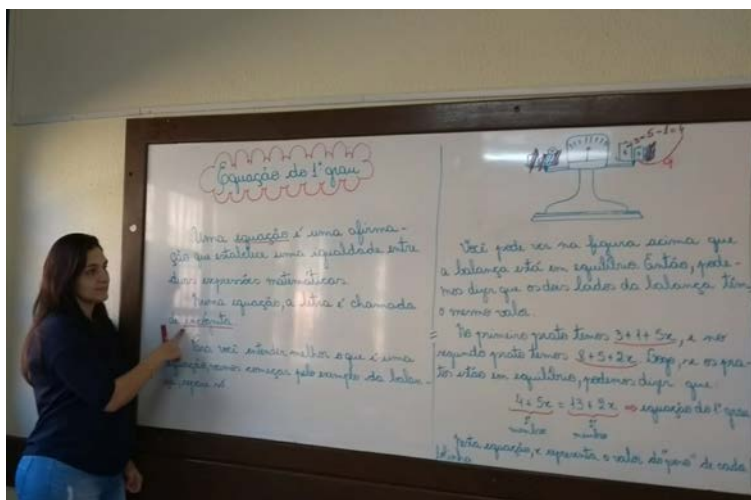 Equação do 1º grau
Uma equação é uma afirma-
ção que estabelece uma igualdade entre
duas expressões matemáticas.
Numa equação, a letra é chamada
de incógnita
Para você entender melhor o que é uma
equação, vamos começar pelo exemplo da balan-
ça, repare só
Você pode ver na figura acima que
a balança está em equilíbrio. Então, pode-
mos dizer que os dois lados da balança têm
o mesmo valor.
No primeiro prato temos 3+1+5x, e no
segundo prato temos 8+5+2x. Logo, se os pra-
tos estão em equilíbrio, podemos dizer que:
4+5x = 13+2x ⇒ equação do 1º grau
1º 2º
membro membro
Nesta equação, x representa o valor do "peso" de cada